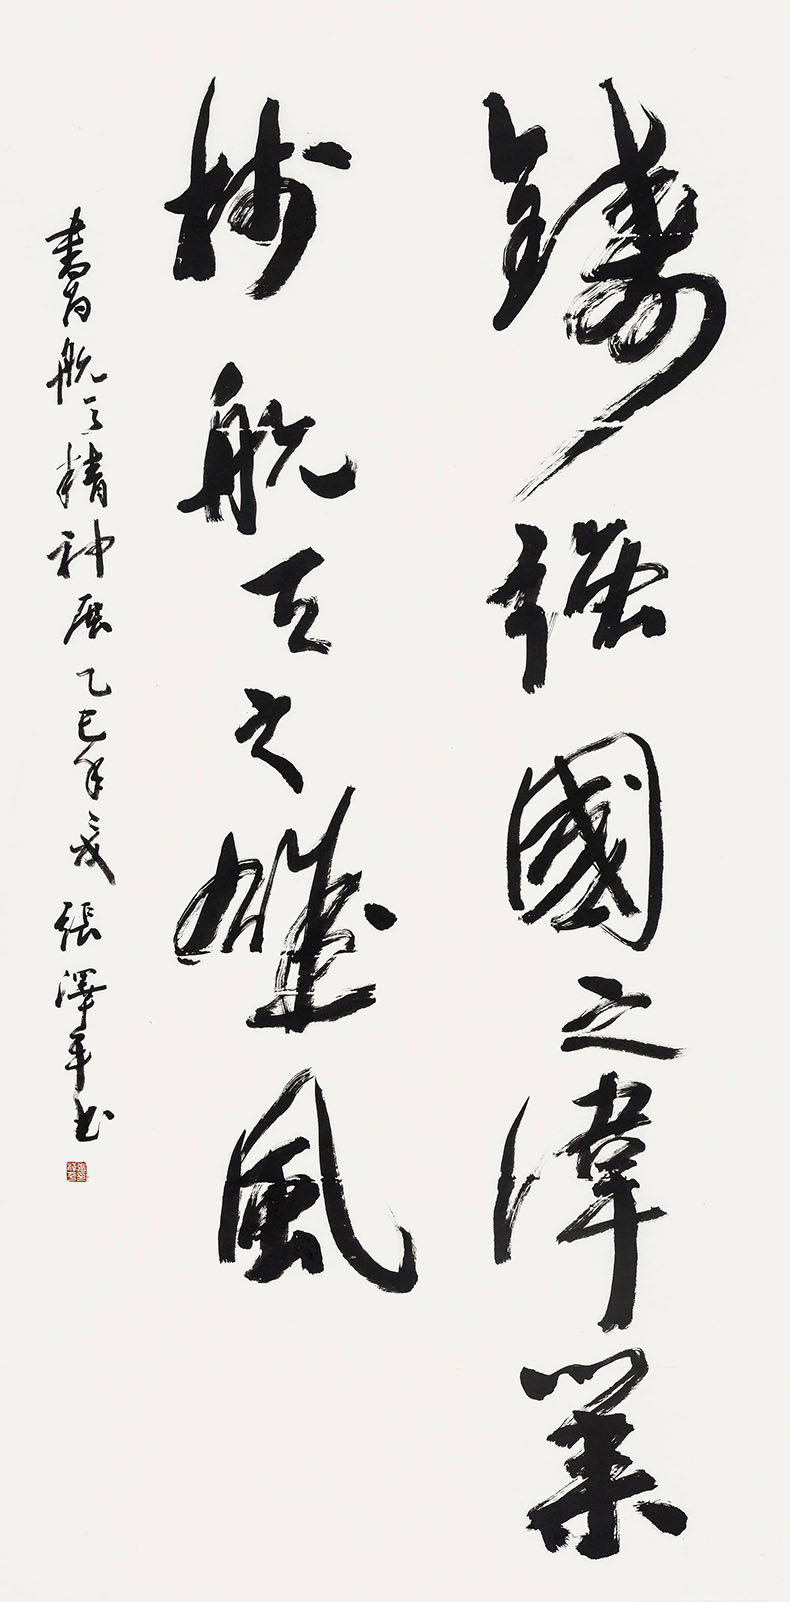 鑄强國之偉業
樹航天之雄風
書为航天精神展乙巳年夏張澤平书